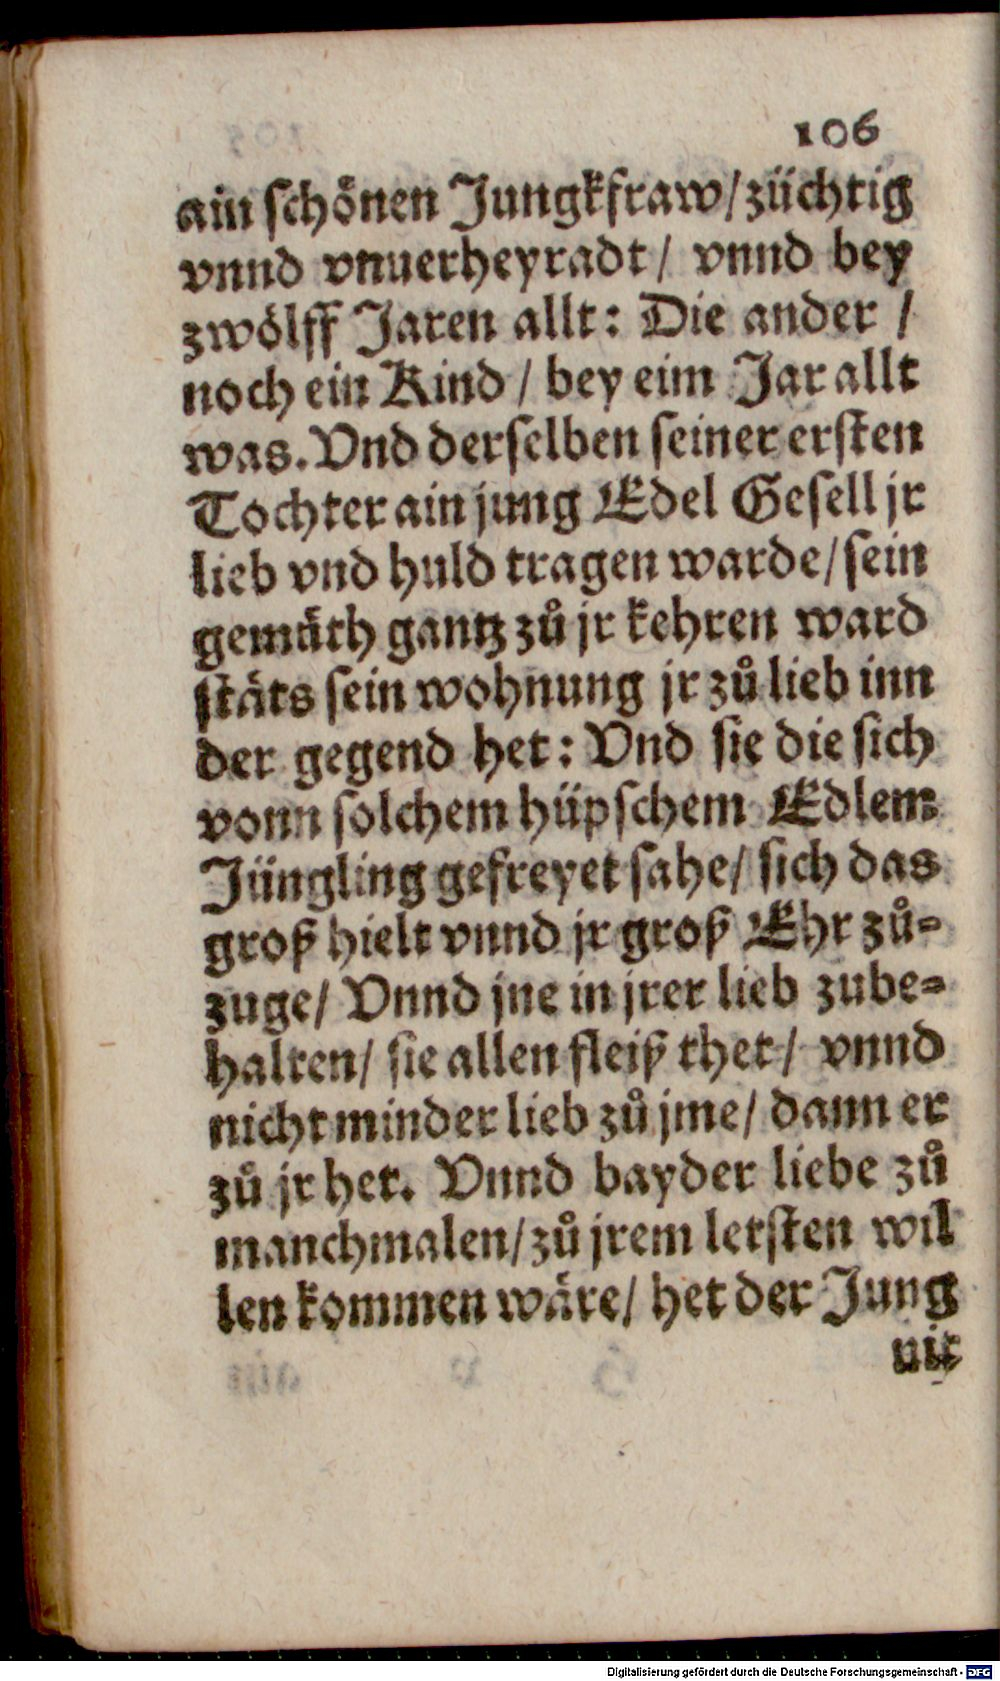 106
ain schönen Jungkfraw/züchtig
vnnd vnuerheyradt/ vnnd bey
zwölff Jaren allt: Die ander /
noch ein Kind / bey eim Jar allt
was. Vnd derselben seiner ersten
Tochter ain jung Edel Gesell jr
lieb vnd huld tragen warde/ sein
gemüth gantz zů jr kehren ward
stäts sein wohnung jr zů lieb inn
der gegend het: Vnd sie die sich
vonn solchem hüpschem Edlem
Jüngling gefreyet sahe/ sich das
groß hielt vnnd jr groß Ehr zů=
zuge/ Vnnd jne in jrer lieb zube=
halten/ sie allen fleiß thet/ vnnd
nicht minder lieb zů jme/ dann er
zů jr het. Vnnd bayder liebe zů
manchmalen/ zů jrem letsten wil
len kommen wäre/ het der Jung
nit
Digitalisierung gefördert durch die Deutsche Forschungsgemeinschaft - DFG